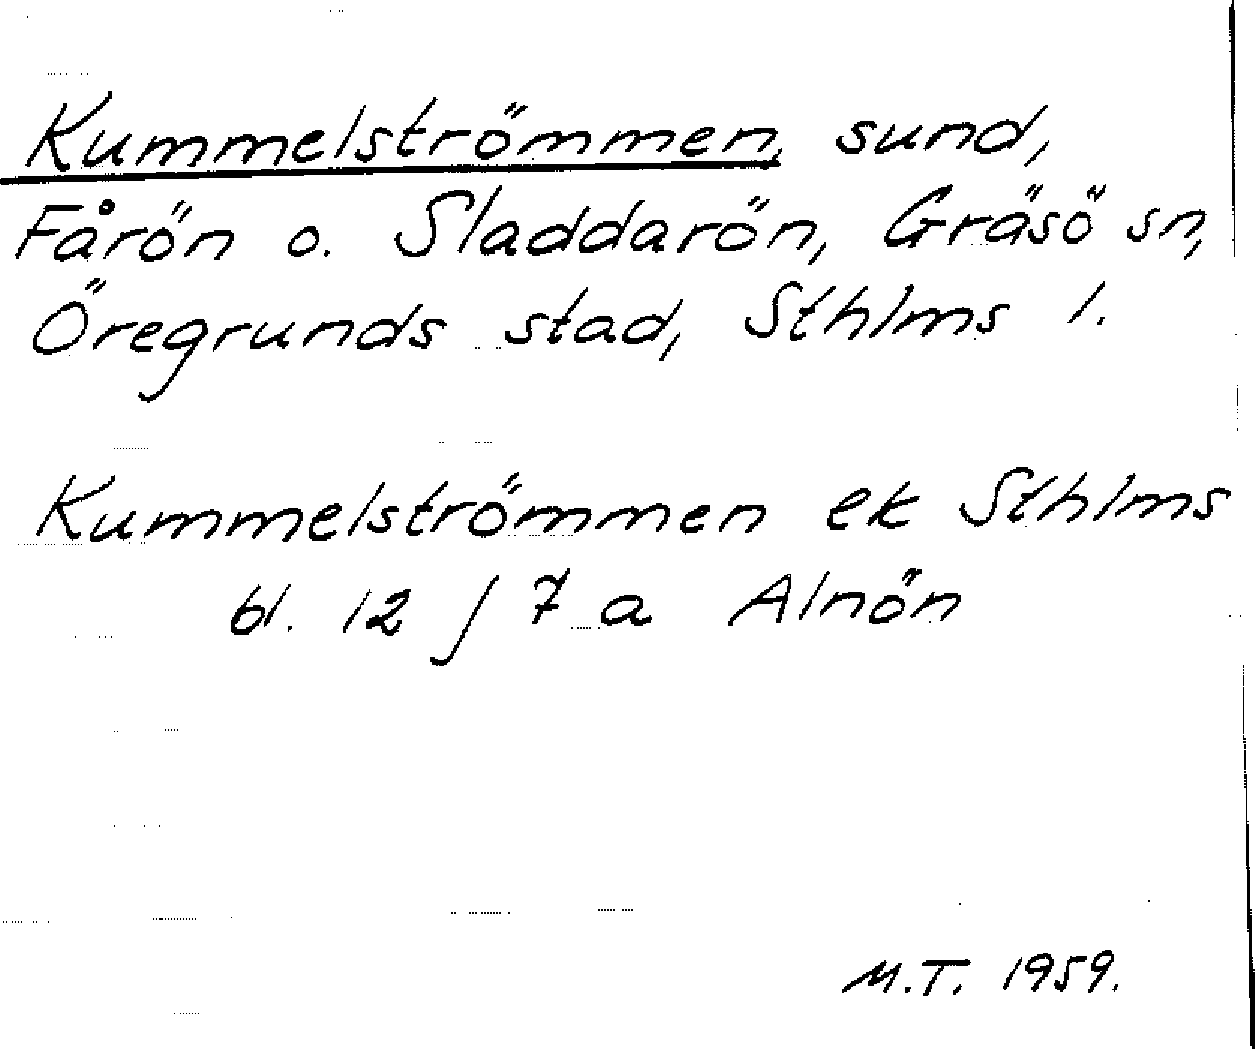 Kummelströmmen, sund,
Fårön o. Sladdarön, Gräsö sn,
Öregrunds stad, Sthlms l.
Kummelströmmen ek Sthlms
bl. 12 f 7 a Alnön
M.T. 1959.